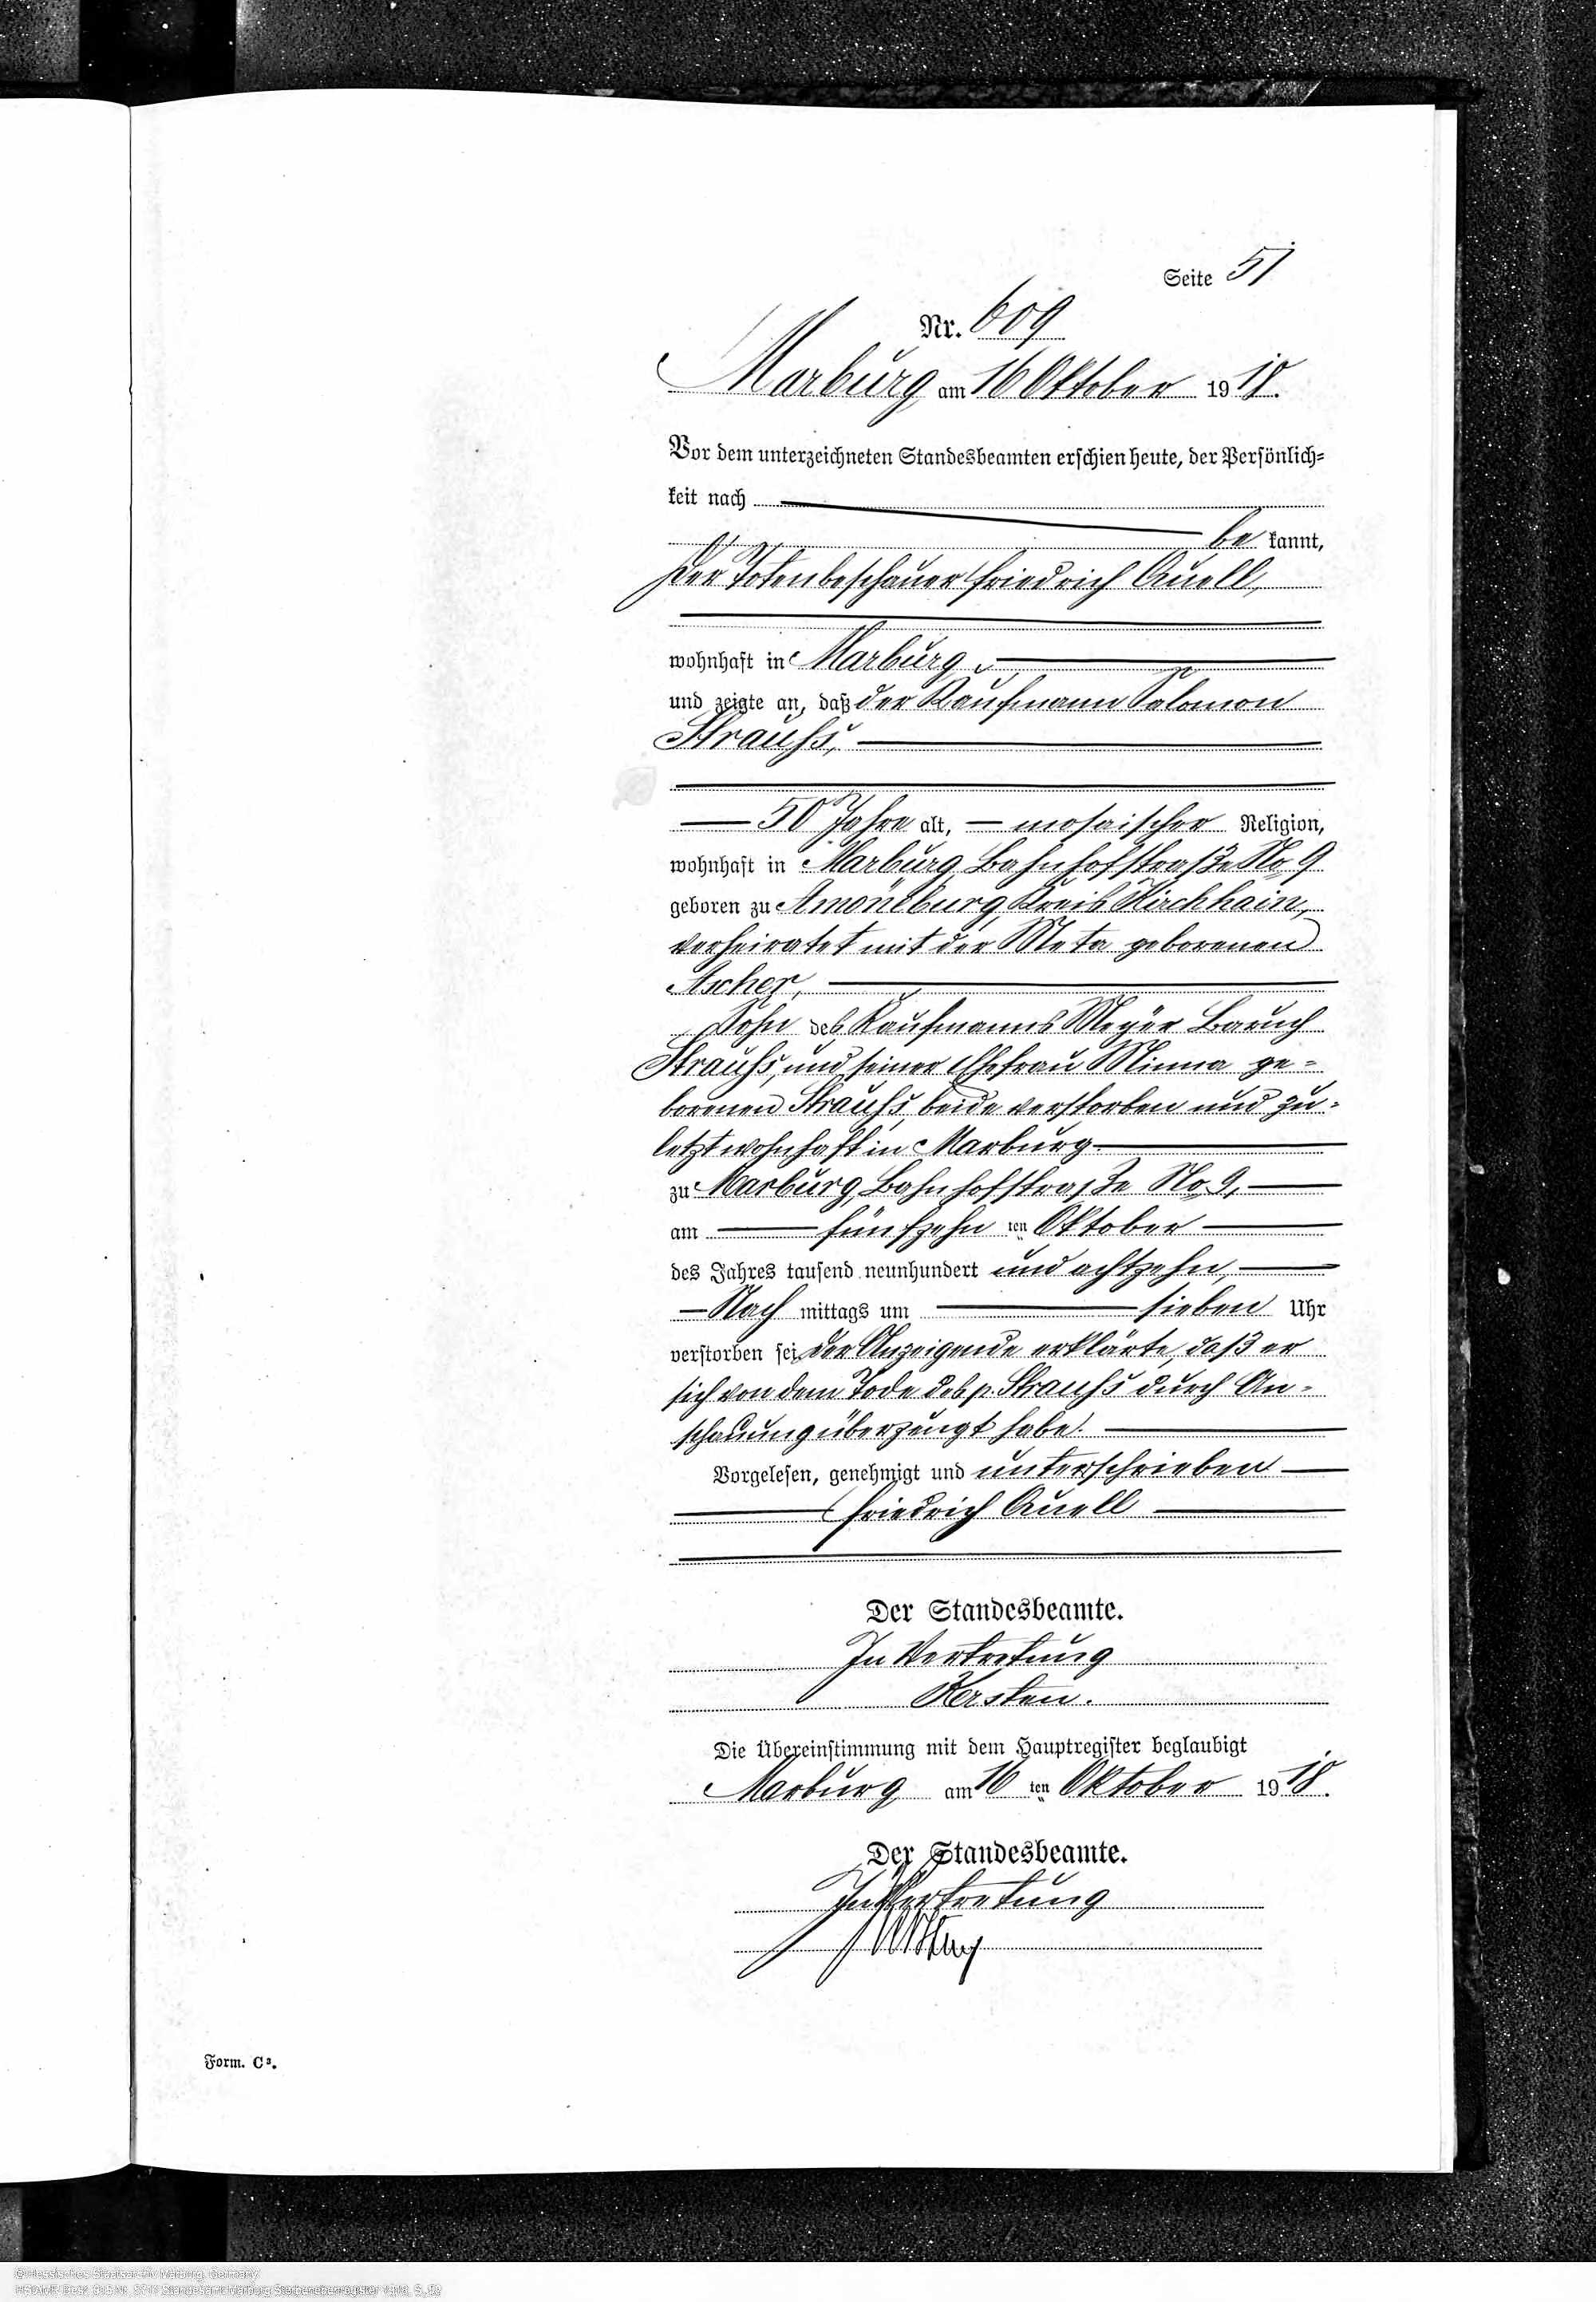 Seite 51
Nr. 609
Marburg am 16 Oktober 1918.
Vor dem unterzeichneten Standesbeamten erschien heute, der Persönlich-
keit nach
be kannt,
der Totenbeschauer Friedrich Quell,
wohnhaft in Marburg,
und zeigte an, daß der Kaufmann Salomon
Strauhs,
50 Jahre alt, mosaischer Religion,
wohnhaft in Marburg, Bahnhofstraße No 9
geboren zu Amöneburg, Kreis Kirchhain,
verheiratet mit der Meta geborenen
Ascher,
Sohn des Kaufmanns Meyer Baruch
Strauhs, und seiner Ehefrau Minna ge-
borenen Strauhs, beide verstorben und zu-
letzt wohnhaft in Marburg
zu Marburg, Bahnhofstraße No 9,
am fünfzehn ten Oktober
des Jahres tausend neunhundert und achtzehn,
Nach mittags um sieben Uhr
verstorben sei, der Anzeigende erklärte, daß er
sich von dem Tode des p. Strauhs durch An-
schauung überzeugt habe.
Vorgelesen, genehmigt und unterschrieben
Friedrich Quell
Der Standesbeamte.
In Vertretung
Kersten.
Die Übereinstimmung mit dem Hauptregister beglaubigt
Marburg am 16 ten Oktober 1918.
Der Standesbeamte.
In Vertretung
Form. C³.